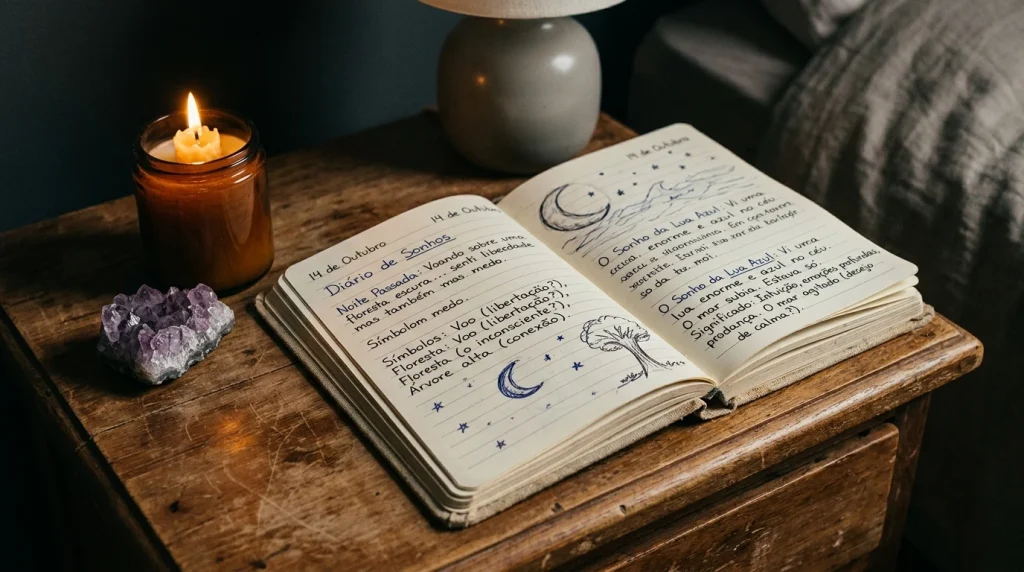 14 de Outubro
14 de Outubro
Diário de Sonhos
Noite Passada: Voando sobre uma
floresta escura... senti liberdade
mas também mas medo.
Símbolom medo.
Símbolos: Voo (libertação?),
Floresta: Voo (libertação?),
Floresta (o inconsciente?),
Arvore alta (conexão).
14 de Outubro
O Sonho da Lua Azul: Vi uma
enorme e azul no céu
O Sonho da Lua Azul: Vi uma
lua enorme e azul no céu.
O mar subia. Estava só.
Significado: Intuição, emoções profundas,
mudança. O mar agitado (desejo
de calma?).